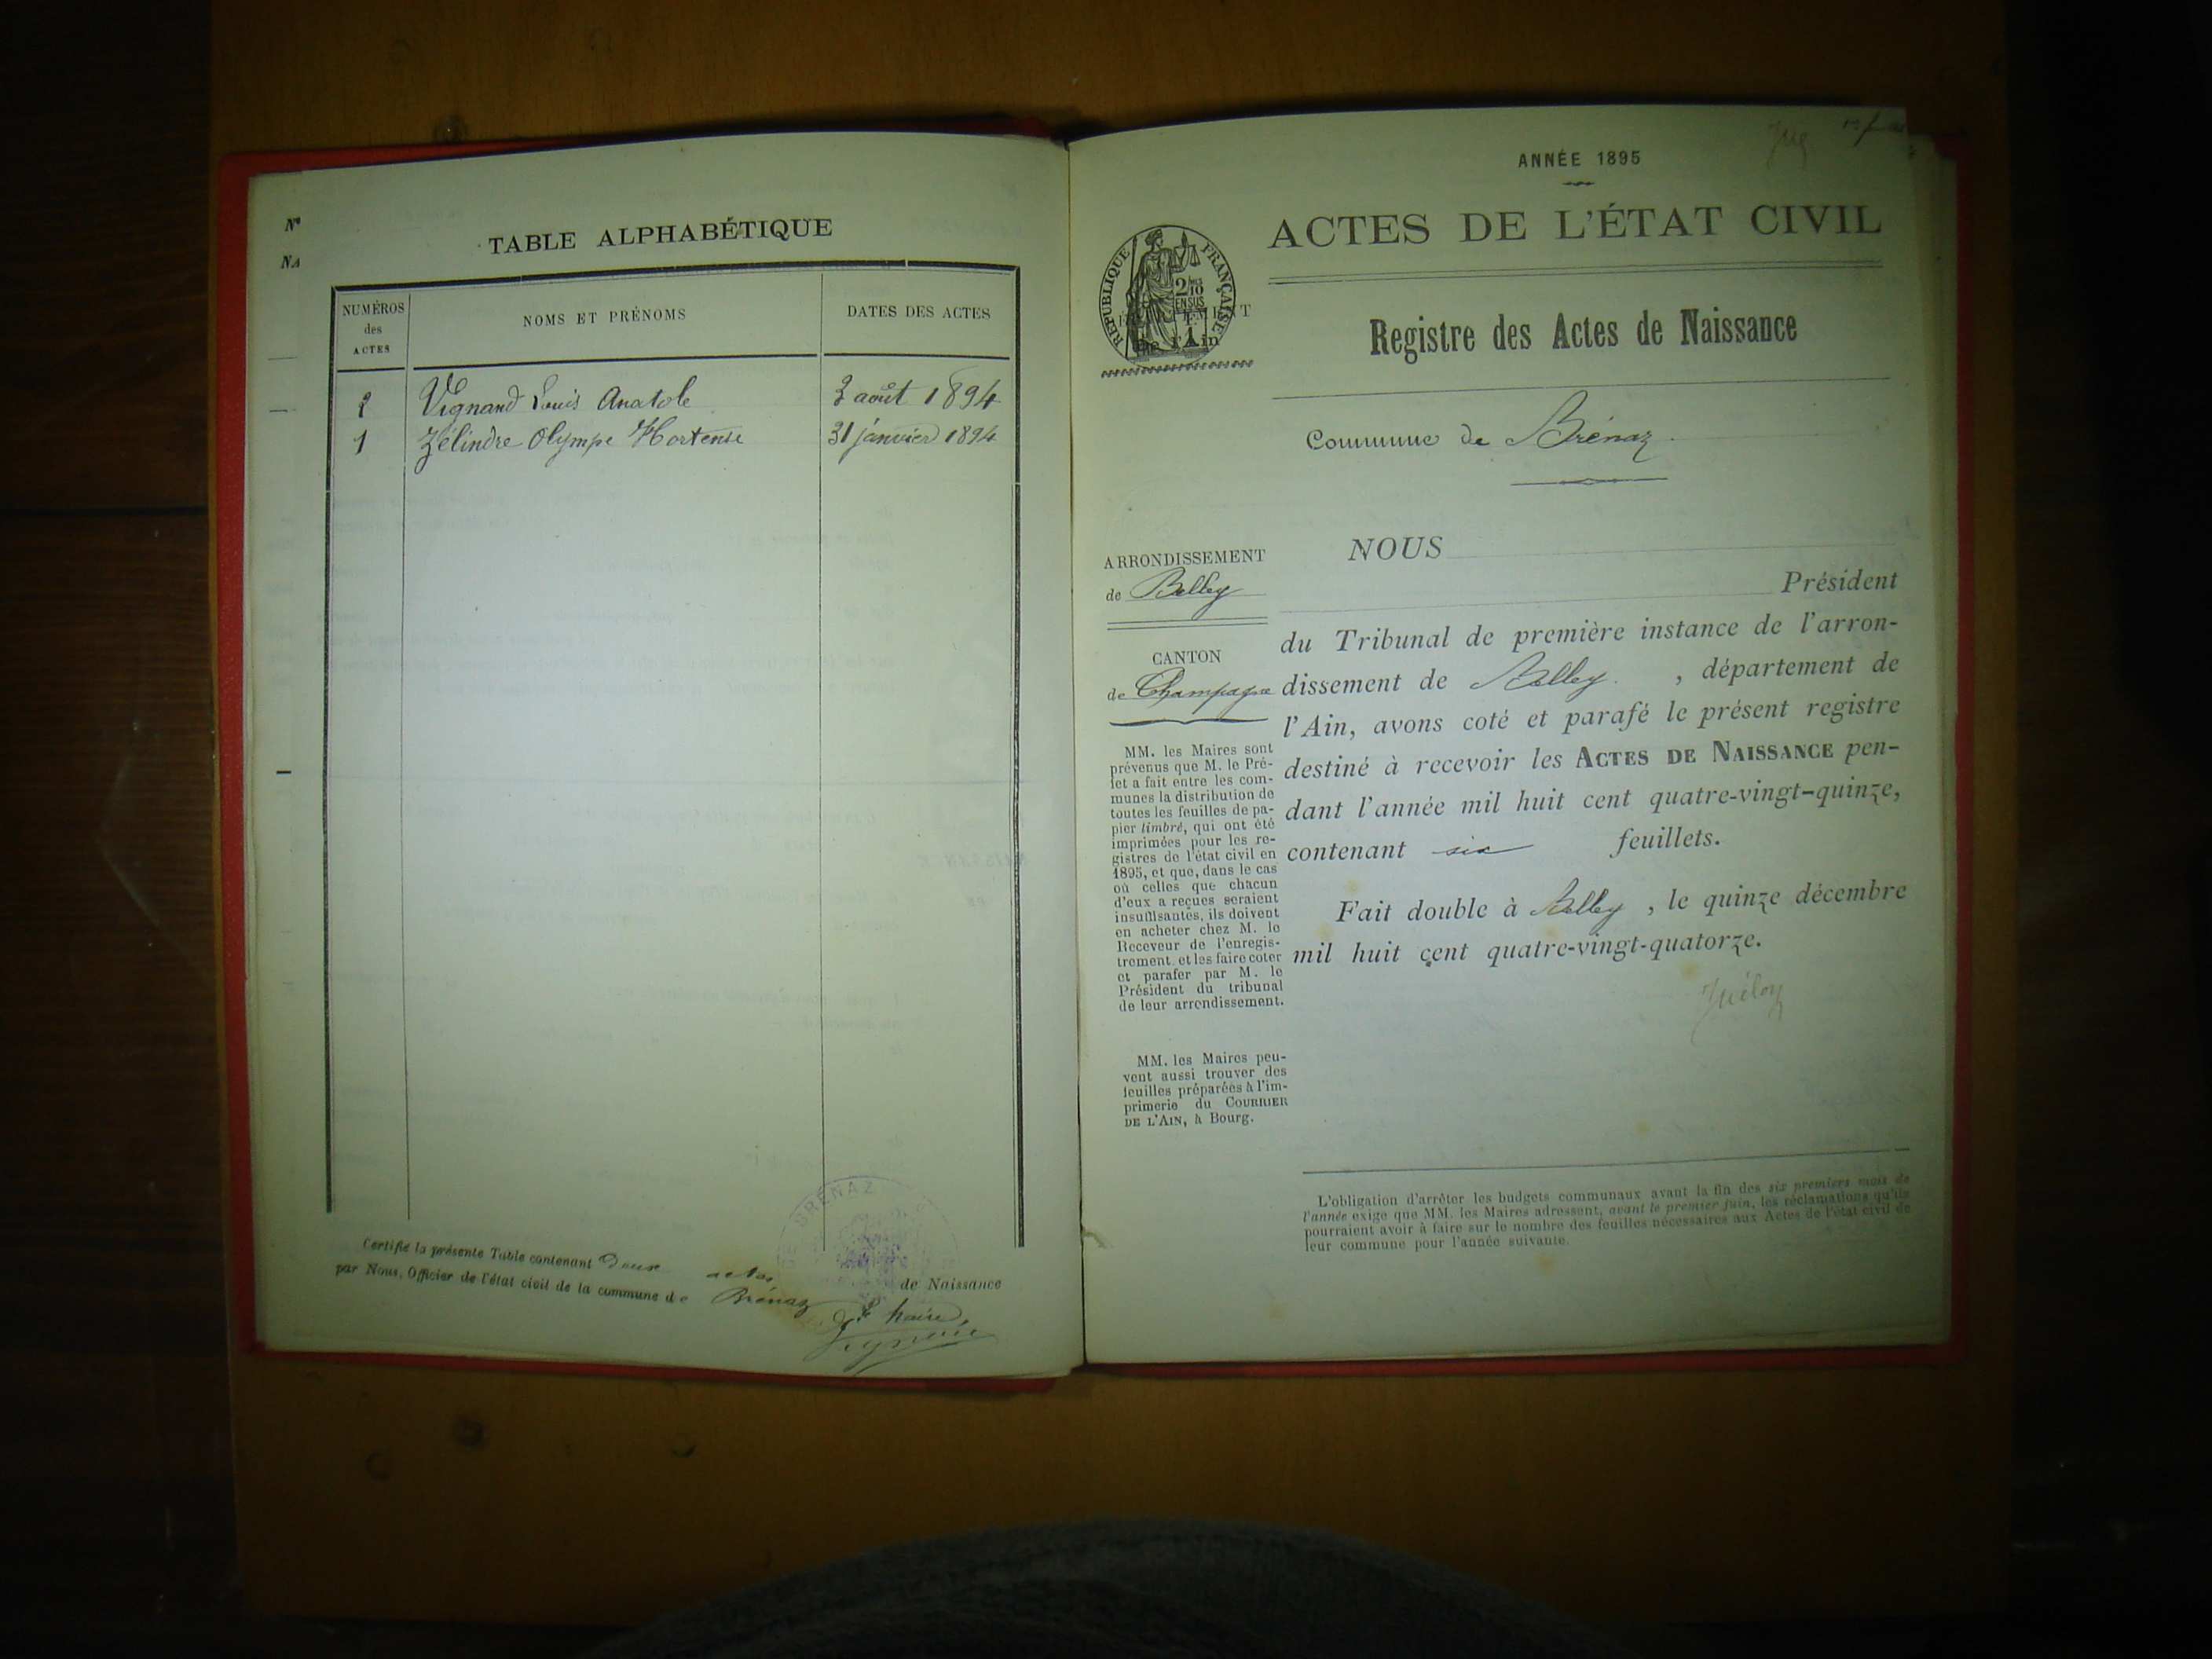 Nº
NA
TABLE ALPHABÉTIQUE
NUMÉROS
des
ACTES
NOMS ET PRÉNOMS
DATES DES ACTES
2 Vignand Louis Anatole 3 août 1894
1 Zélindre Olympe Hortense 31 janvier 1894
BRÉNAZ
Certifié la présente Table contenant Deux actes de Naissance
par Nous, Officier de l'état civil de la commune de Brénaz
maire,
ANNÉE 1895
ACTES DE L'ÉTAT CIVIL
RÉPUBLIQUE FRANÇAISE
2/10
EN SUS
de l'Ain
Registre des Actes de Naissance
Commune de Brénaz
ARRONDISSEMENT
de Belley
CANTON
de Champagne
MM. les Maires sont
prévenus que M. le Pré-
fet a fait entre les com-
munes la distribution de
toutes les feuilles de pa-
pier timbré, qui ont été
imprimées pour les re-
gistres de l'état civil en
1895, et que, dans le cas
où celles que chacun
d'eux a reçues seraient
insuffisantes, ils doivent
en acheter chez M. le
Receveur de l'enregis-
trement et les faire coter
et parafer par M. le
Président du tribunal
de leur arrondissement.
MM. les Maires peu-
vent aussi trouver des
feuilles préparées à l'im-
primerie du COURRIER
DE L'AIN, à Bourg.
NOUS
Président
du Tribunal de première instance de l'arron-
dissement de Belley , département de
l'Ain, avons coté et parafé le présent registre
destiné à recevoir les ACTES DE NAISSANCE pen-
dant l'année mil huit cent quatre-vingt-quinze,
contenant six feuillets.
Fait double à Belley , le quinze décembre
mil huit cent quatre-vingt-quatorze.
L'obligation d'arrêter les budgets communaux avant la fin des six premiers mois de
l'année exige que MM. les Maires adressent, avant le premier juin, les réclamations qu'ils
pourraient avoir à faire sur le nombre des feuilles nécessaires aux Actes de l'état civil de
leur commune pour l'année suivante.